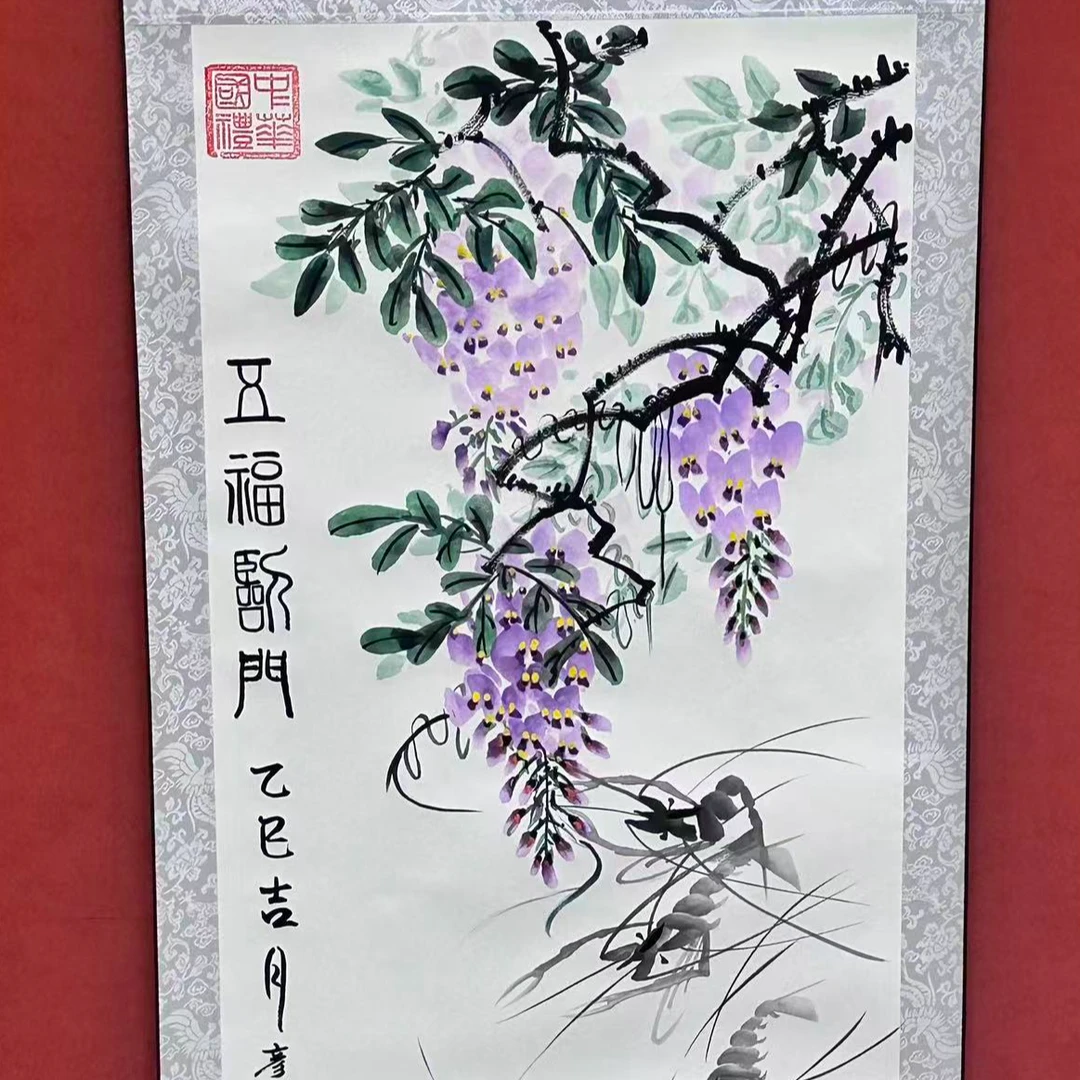 中華
國禮
五福臨門 乙巳吉月彥